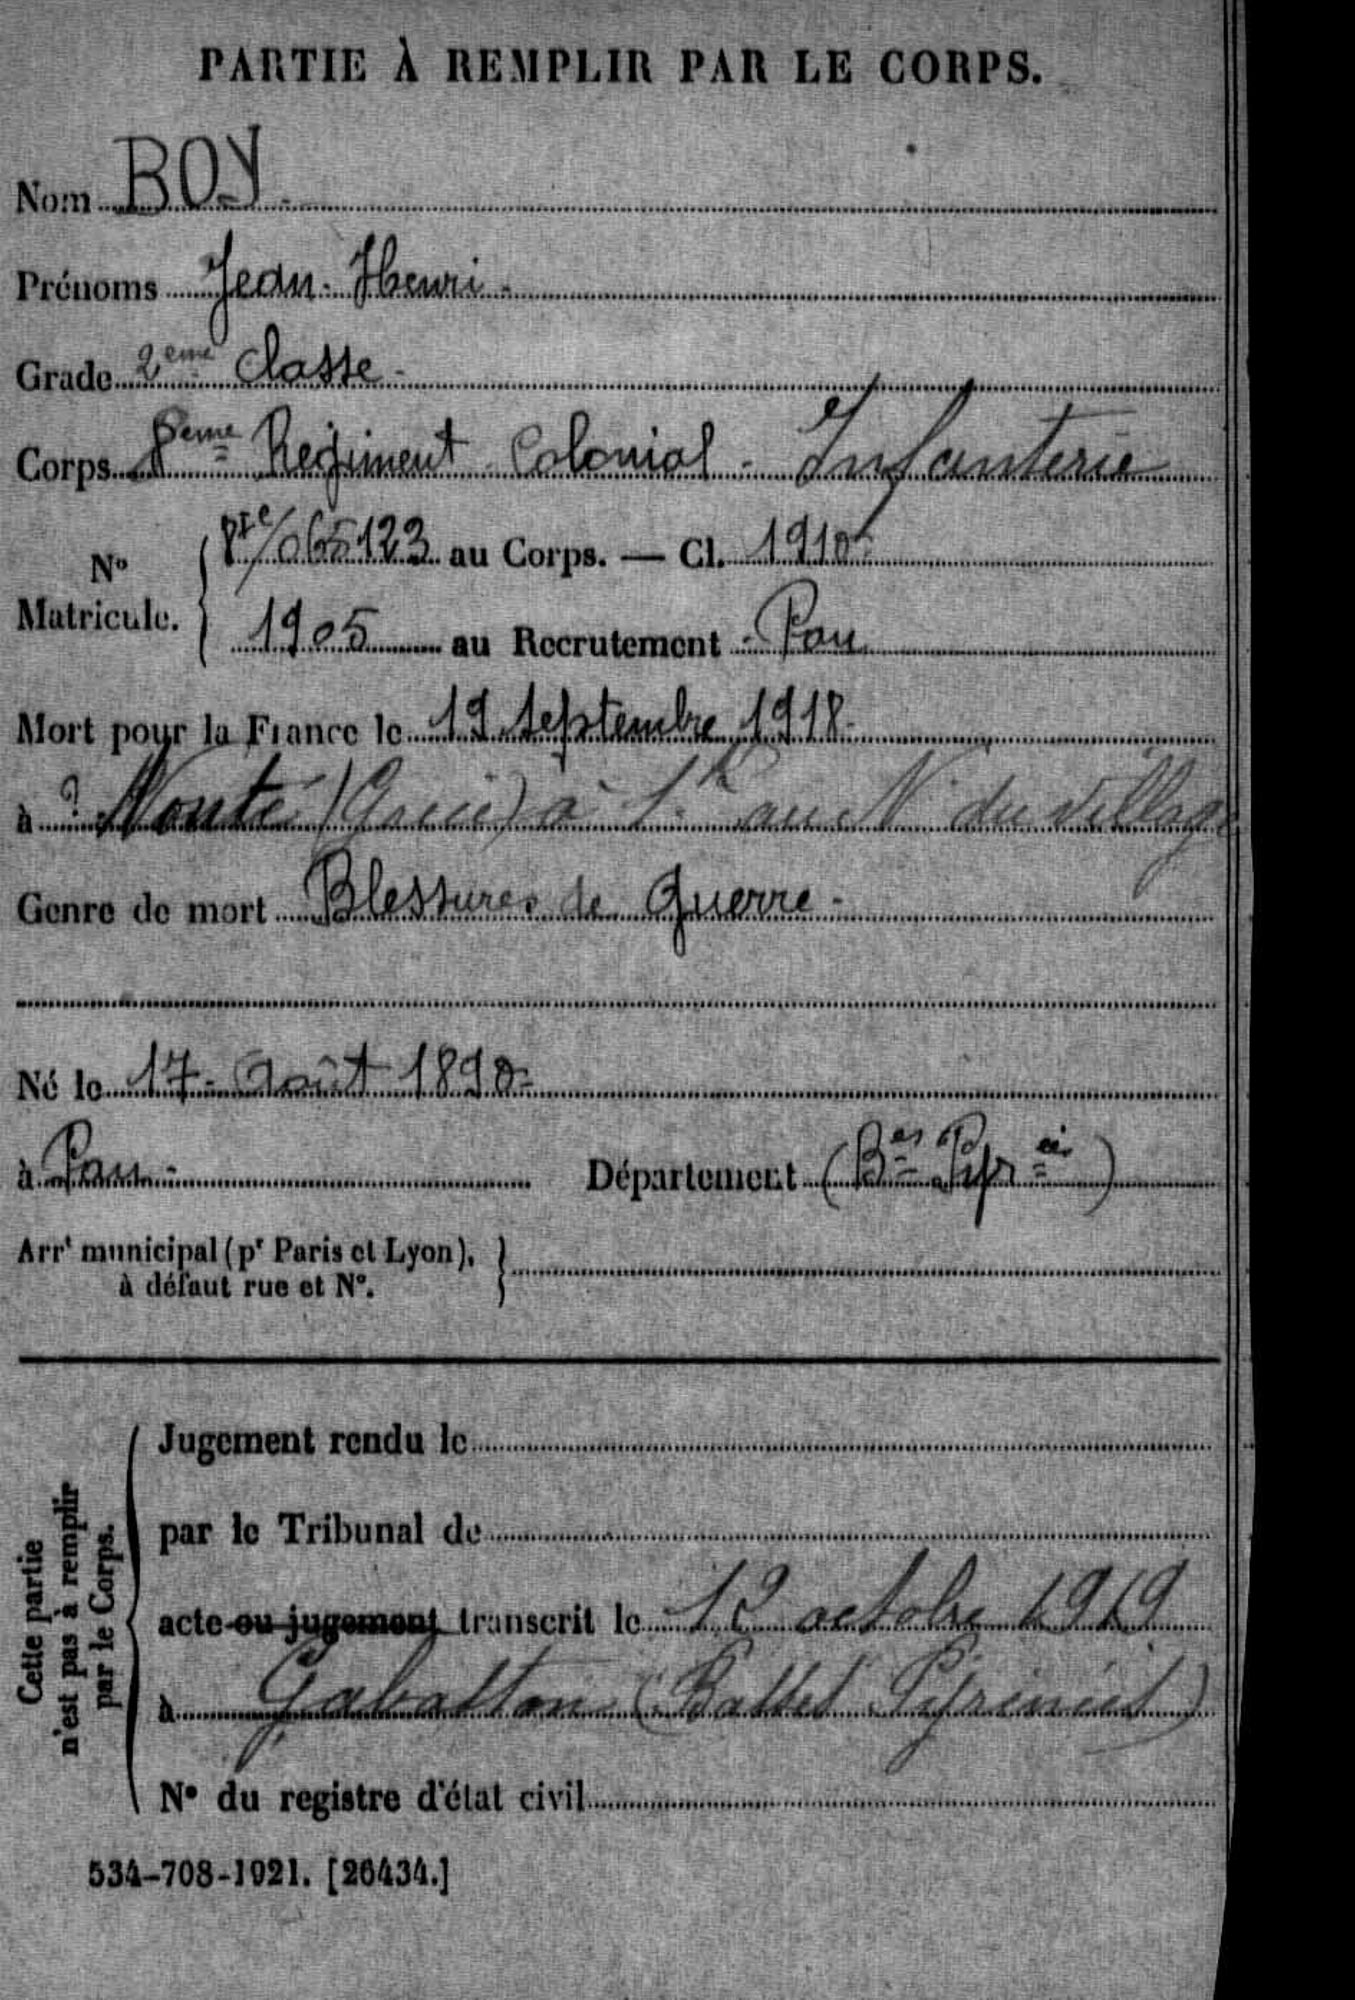 PARTIE À REMPLIR PAR LE CORPS.
Nom BOY
Prénoms Jean-Henri
Grade 2eme Classe
Corps 8eme Régiment Colonial - Infanterie
No Matricule. 065123 au Corps. — Cl. 1910
1905 au Recrutement Pau
Mort pour la France le 19 Septembre 1918
à ? Monte (Grèce) à 1.k au N. du village
Genre de mort Blessures de Guerre
Né le 17 Août 1890
à Pau Département (Bses Pyrées)
Arrt municipal (pr Paris et Lyon),
à défaut rue et N°.
Cette partie n'est pas à remplir par le Corps.
Jugement rendu le
par le Tribunal de
acte ou jugement transcrit le 12 octobre 1919
à Gabaston (Basses Pyrénées)
N° du registre d'état civil
534-708-1921. [26434.]